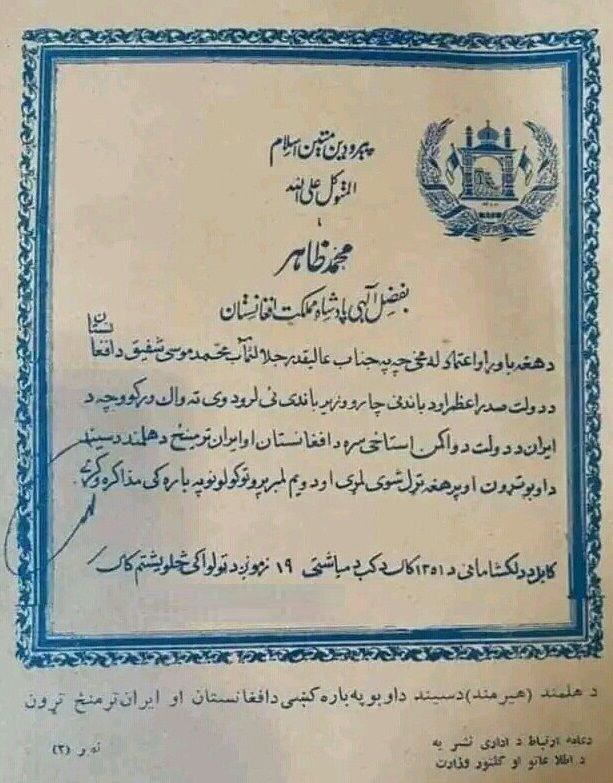 پیرو دین متین اسلام
المتوکل علی الله
محمد ظاهر
بفضل الهی پادشاه مملکت افغانستان
د هغه باور او اعتماد له مخی چه په جناب عالیقدر جلالتمآب محمد موسی شفیق د افغانستان
د دولت صدراعظم او د باندنی چارو وزیر باندی ئی لرو دوی ته واک ورکوو چه د
ایران د دولت د واکمن استاځی سره د افغانستان او ایران ترمنځ د هلمند د سیند
د اوبو تړون او پر هغه تړل شوی لمړی او دویم لمبر پروتوکولونو په باره کی مذاکره وکړی.
کابل د دلکشا ماڼی د ۱۳۵۱ کال د کب د میاشتی ۱۹ زموږ د ټولواکی څلویښتم کال
د هلمند (هیرمند) د سیند د اوبو په باره کښی د افغانستان او ایران ترمنځ تړون
د عامه ارتباط د اداری نشریه
د اطلاعاتو او کلتور وزارت
نمر (۳)